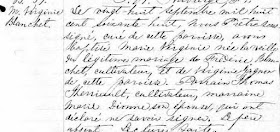 M. Virginie
Blanchet.
Le vingt sept septembre mil huit
cent soixante huit, nous Ptre sous
signé, curé de cette paroisse, avons
baptisé Marie Virginie née la veille
du légitime mariage de Frédéric Blan
chet, cultivateur, et de Virginie
de cette paroisse. Parrain Thomas
Therriault, cultivateur, marraine
Marie Dionne son épouse, qui ont
déclaré ne savoir signer. Le père
absent. Lecture faite.